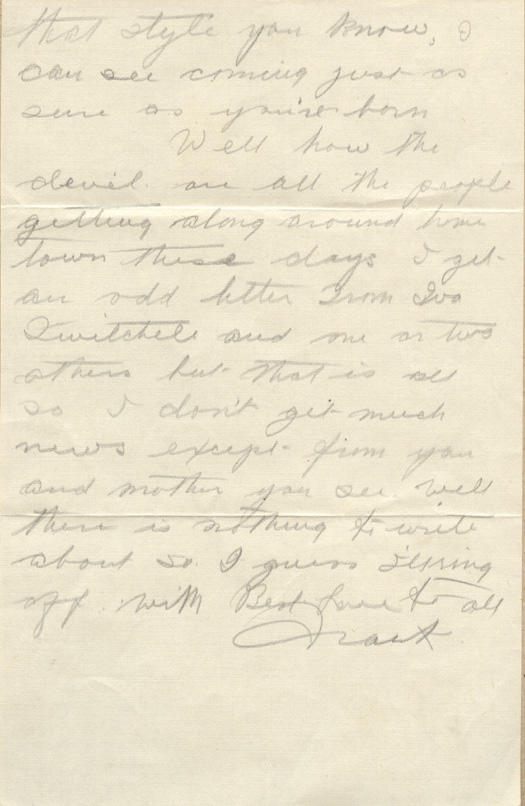 that style you know, I
can see coming just as
sure as you're born
Well how the
devil are all the people
getting along around home
town these days I get
an odd letter from Iva
Twitchell and one or two
others but that is all
so I don't get much
news except from you
and mother you see. Well
there is nothing to write
about so I guess I'll ring
off with Best love to all